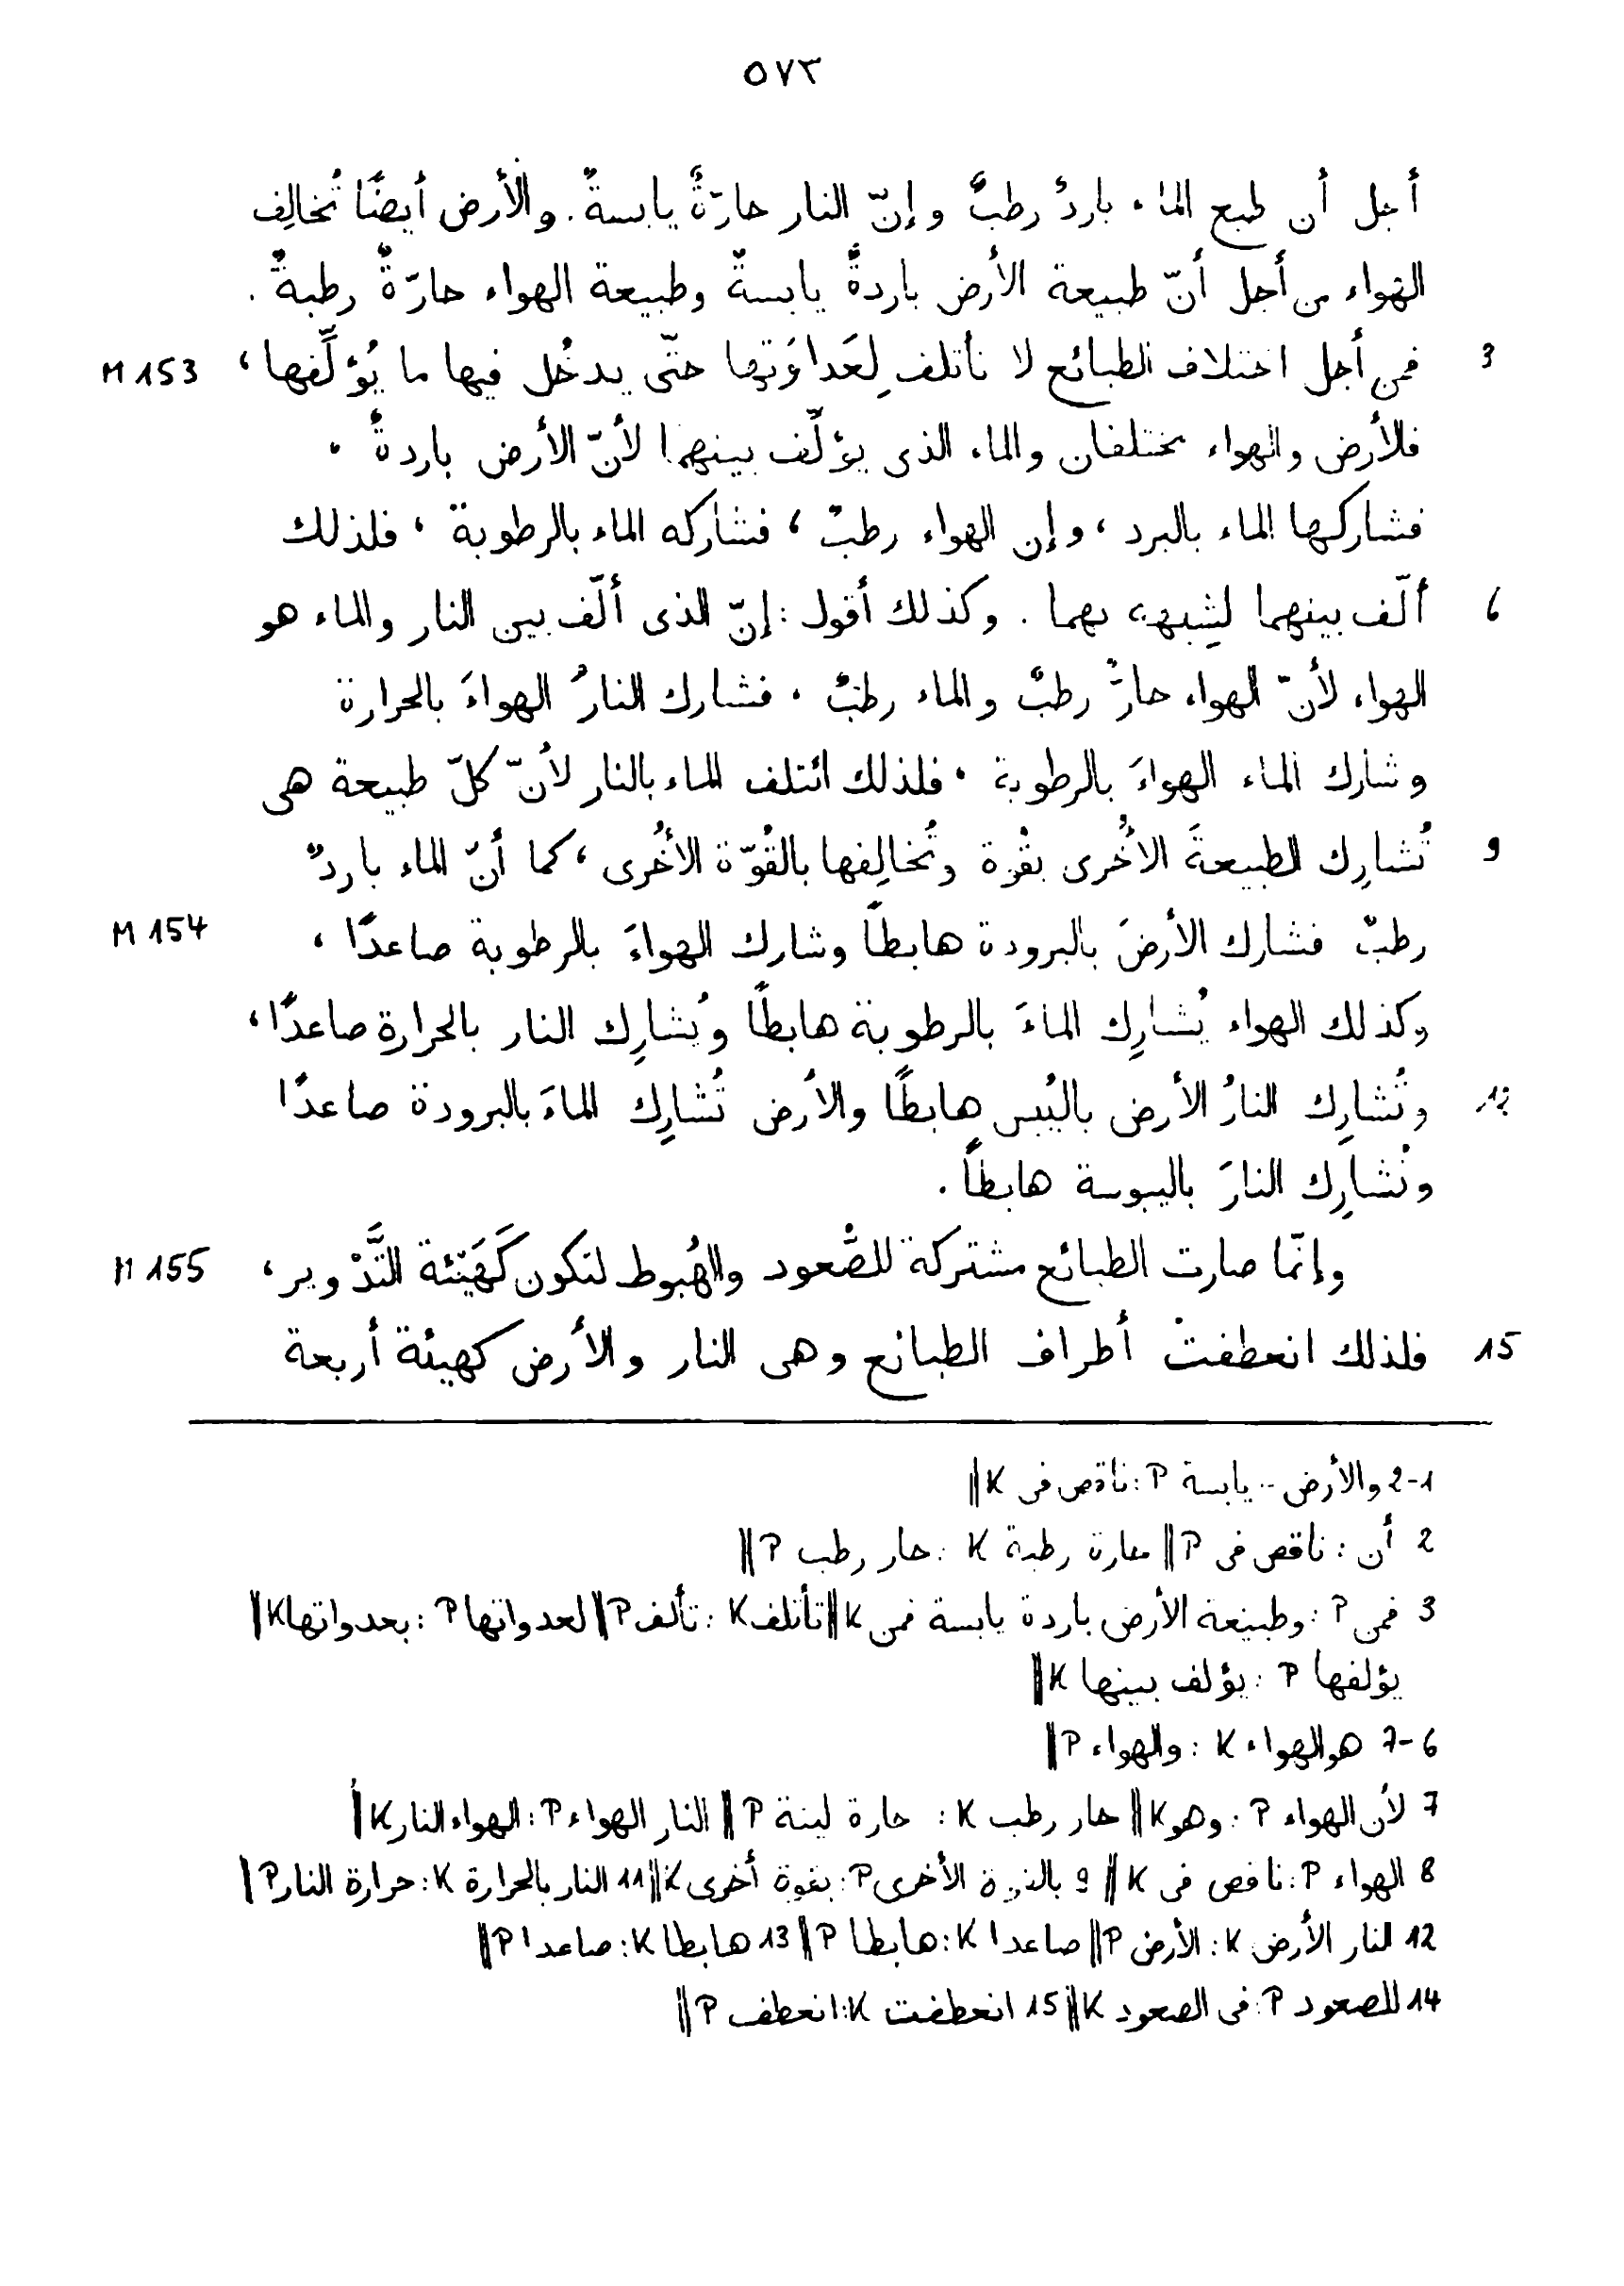 ٥٧٣
أجل أن طبع الماء باردٌ رطبٌ وإنّ النار حارّةٌ يابسةٌ. والأرض أيضًا تُخالِف
الهواء من أجل أنّ طبيعة الأرض باردةٌ يابسةٌ وطبيعة الهواء حارّةٌ رطبةٌ.
3 فمن أجل اختلاف الطبائع لا تأتلف لِعَداوَتِها حتّى يدخُل فيها ما يُؤلِّفها، M 153
فالأرض والهواء مختلفان والماء الذى يؤلِّف بينهما لأنّ الأرض باردةٌ،
فشاركها الماء بالبرد، وإن الهواء رطبٌ، فشاركه الماء بالرطوبة، فلذلك
6 ألّف بينهما لشِبهه بهما. وكذلك أقول: إنّ الذى ألّف بين النار والماء هو
الهواء لأنّ الهواء حارٌّ رطبٌ والماء رطبٌ، فشارك النارُ الهواءَ بالحرارة
وشارك الماء الهواءَ بالرطوبة، فلذلك ائتلف الماء بالنار لأنّ كلّ طبيعة هى
9 تُشارِك الطبيعةَ الأُخرى بقُوّة وتُخالِفها بالقُوّة الأُخرى، كما أنّ الماء باردٌ
رطبٌ فشارك الأرضَ بالبرودة هابطاً وشارك الهواءَ بالرطوبة صاعدًا، M 154
وكذلك الهواء يُشارِك الماءَ بالرطوبة هابطًا ويُشارِك النار بالحرارة صاعدًا،
12 وتُشارِك النارُ الأرض باليُبس هابطًا والأرض تُشارِك الماءَ بالبرودة صاعدًا
وتُشارِك النارَ باليبوسة هابطاً.
وإنّما صارت الطبائع مشتركة للصُّعود والهُبوط لتكون كَهَيْئة التَّدْوير، M 155
15 فلذلك انعطفتْ أطراف الطبائع وهى النار والأرض كهيئة أربعة
2-1 والأرض .. يابسة P : ناقص فى K ||
2 أن : ناقص فى P || حارة رطبة K : حار رطب P ||
3 فمن P : وطبيعة الأرض باردة يابسة فمن K || تأتلف K : تألف P || لعدواتها P : بعدواتها K ||
يؤلفها P : يؤلف بينها K ||
7-6 هو الهواء K : والهواء P ||
7 لأن الهواء P : وهو K || حار رطب K : حارة لينة P || النار الهواء P : الهواء النار K ||
8 الهواء P : ناقص فى K || 9 بالقوة الأخرى P : بقوة أخرى K || 11 النار بالحرارة K : حرارة النار P ||
12 النار الأرض K : الأرض P || صاعدا K : هابطا P || 13 هابطا K : صاعدا P ||
14 للصعود P : فى الصعود K || 15 انعطفت K : انعطف P ||